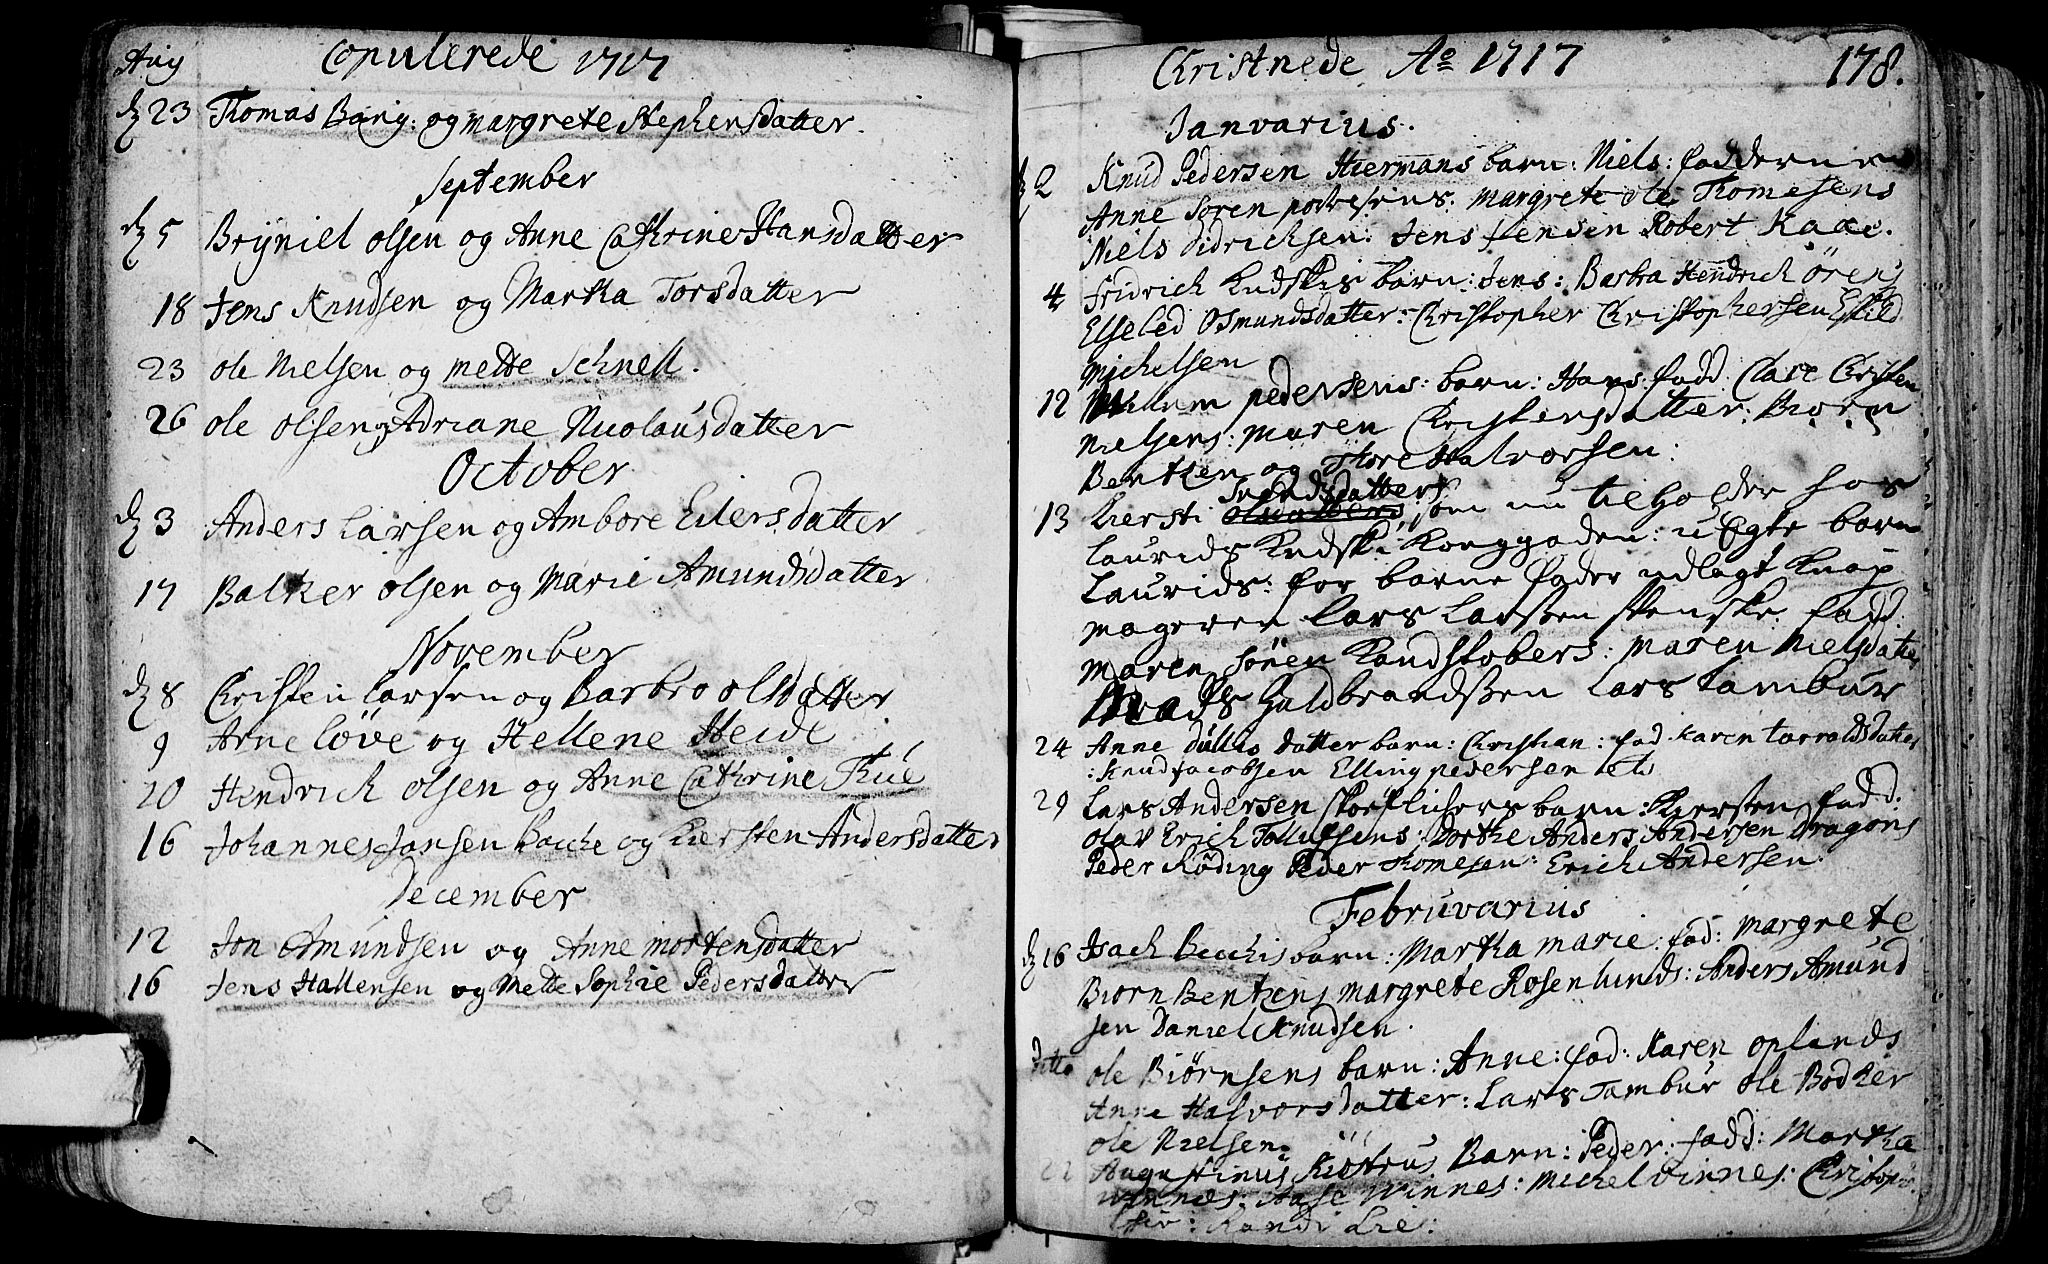 Aug Copulerede 1717
d 23 Thomas Bang: og margrete Stephensdatter.
September
d 5 Bryniel olsen og Anne Cathrine Hansdatter
18 Jens Knudsen og Martha Torsdatter
23 ole Nielsen og mette Schnell.
26 ole olsen og Adriane Nicolausdatter
October
d 3 Anders Larsen og Ambore Eilersdatter
17 Baltzer olsen og Marie Amundsdatter
November
d 8 Christen Larsen og Barbro olsdatter
9 Arne Løve og Hellene Heide
10 Hendrich olsen og Anne Cathrine Thue
16 Johannes Jansen Bache og Kiersten Andersdatter
December
12 Jon Amundsen og Anne mortensdatter
16 Jens Hallensen og Mette Sophie Pedersdatter
Christnede Ao 1717 178.
Janvarius.
d 2 Knud Pedersen Hiermans barn: Niels: fadderne
Anne Søren margrete ole Thomesens
Niels Didrichsen: Jens Jensen Robert Kaae.
4 Fridrich Kudskis barn: Jens: Barbra Hendrich
Elseled Osmundsdatter: Christopher Christophersen Eskild
Michelsen
12 Willum pedersens: barn: Hans: fadd Christen
Nielsens: maren Christensdatter: Biørn
Bentzen og Thore Halvorsen:
13 Kiersti Svendsdatter som nu tilholder hos
Laurids Kudsk i Konggaden: uEgte barn
Laurids: for barne fader udlagt Knap
mageren Lars Larssen Svenske fadd:
maren Sören Kandstøbers: maren Nielsdatter
Mads Guldbrandssen Lars Tambur
24 Anne datter barn: Christian: fad Karen Taraldsdatter
: Knud Jacobsen Elling pedersen etc
29 Lars Andersen barn: Kiersten fadd:
Olav Erich Tollufsens: Dorthe Anders Andersen Dragons
Peder Röding Peder Thomesen: Erich Andersen
Februvarius
d 16 Isach Becchis barn: Martha marie: fad: margrete
Biørn Bentzens margrete Rosenlunds: Anders Amund
sen Daniel Knudsen.
Ditto ole Biørnsens barn: Anne: fad: Karen oplands
Anne Halvorsdatter: Lars Tambur ole Bødker
ole Nielsen.
Augustinus Barn: Peder: fadd: Martha
Winnes: Aase Winnes: Michel Vinnes:
Randi Lie: